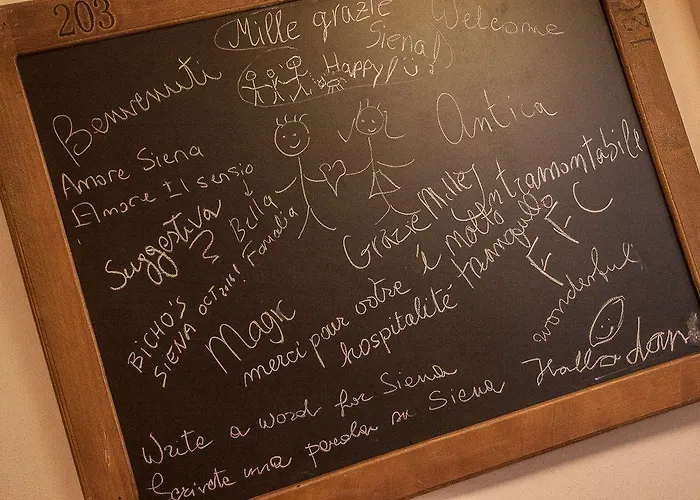 203
Mille grazie
Siena!
Welcome
Happy!
Benvenuti
Antica
Amore Siena
Amore Il sensio
Suggestiva
Bella
Familia
Grazie Mille
Intramontabile
é molto tranquilla
FFC
BICHO'S
SIENA OCT 2k18!
Magic
merci pour votre
hospitalité
wonderful
Hallo
Write a word for Siena
Scrivete una parola su Siena